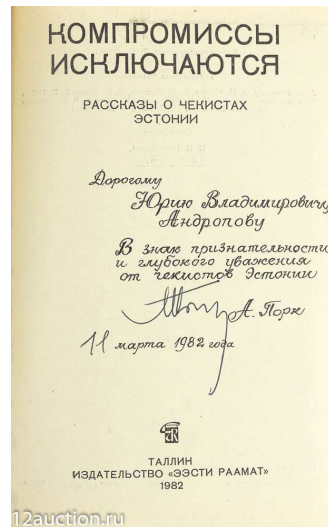 КОМПРОМИССЫ
ИСКЛЮЧАЮТСЯ
РАССКАЗЫ О ЧЕКИСТАХ
ЭСТОНИИ
Дорогому
Юрию Владимировичу
Андропову
В знак признательности
и глубокого уважения
от чекистов Эстонии
А. Порк
11 марта 1982 года
ТАЛЛИН
ИЗДАТЕЛЬСТВО «ЭЭСТИ РААМАТ»
1982
12auction.ru